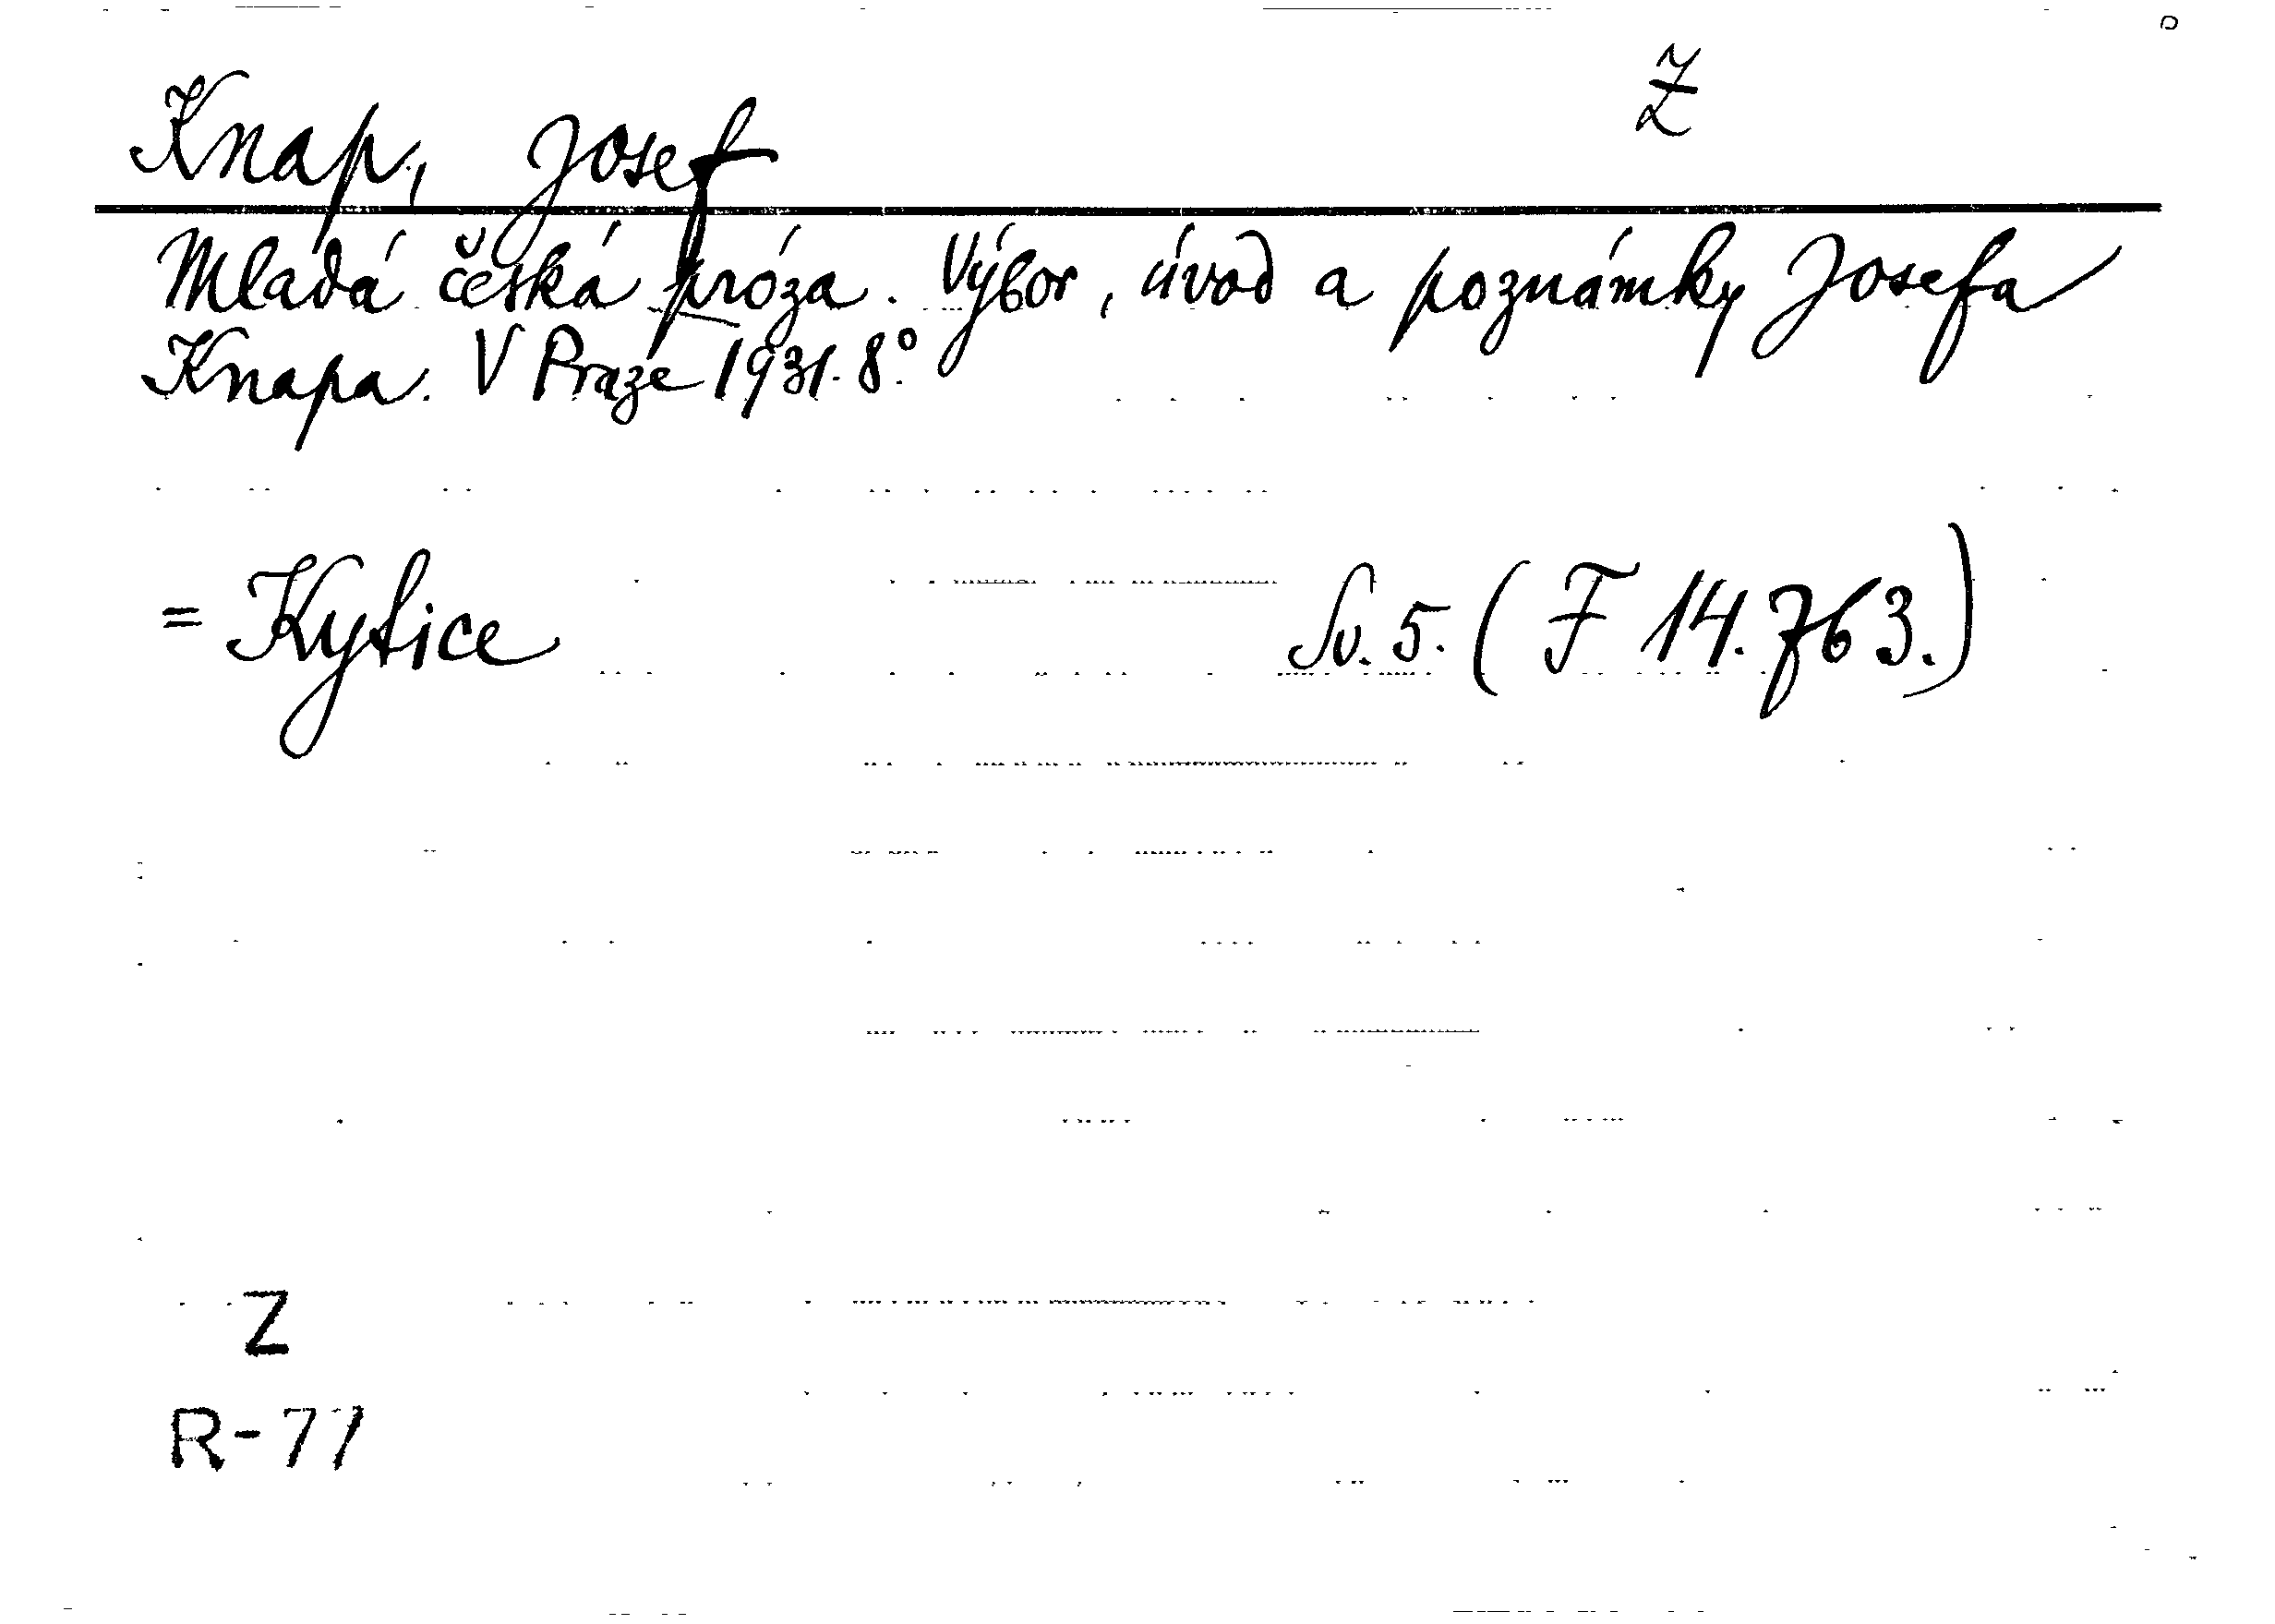 Z
Knap, Josef
Mladá česká próza. Výbor, úvod a poznámky Josefa
Knapa. V Praze 1931. 8°.
= Kytice Sv. 5. (F 14.763.)
Z
R-77